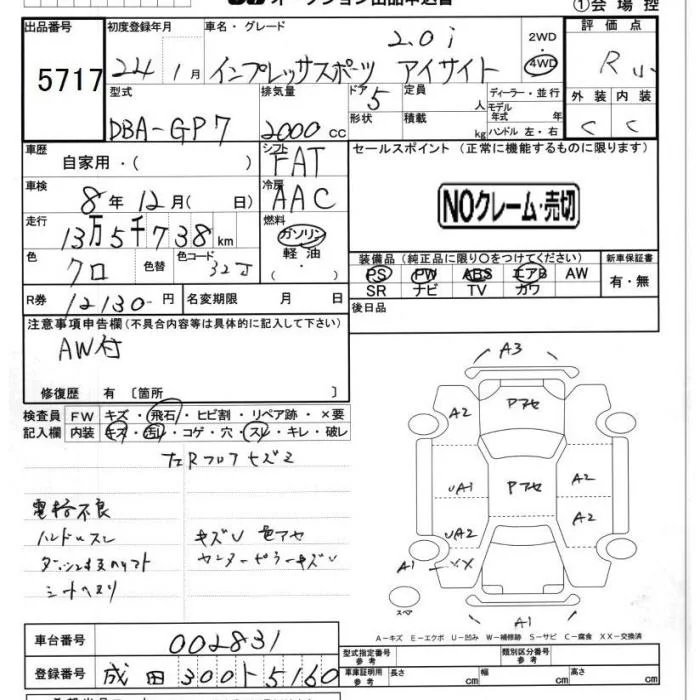 オークション出品申込書 ①会場控
出品番号 初度登録年月 車名・グレード 2WD 評価点
5717 24 1月 インプレッサスポーツ 2.0i アイサイト 4WD R
型式 排気量 ドア 5 定員 人 ディーラー・並行 外装 内装
DBA-GP7 2000cc 形状 積載 kg モデル年式 年 ハンドル 左・右 C C
車歴 自家用・( ) シフト FAT セールスポイント (正常に機能するものに限ります)
車検 8年12月( 日) 冷房 AAC NOクレーム・売切
走行 13万5千738km 燃料 ガソリン 軽油 ・( )
色 クロ 色替 色コード 32J
装備品(純正品に限り〇をつけてください) 新車保証書
PS PW ABS エアB AW 有・無
SR ナビ TV カワ
R券 12130-円 名変期限 月 日 後日品
注意事項申告欄(不具合内容等は具体的に記入して下さい)
AW付
修復歴 有〔箇所 〕
検査員 FW キズ・飛石・ヒビ割・リペア跡・×要
記入欄 内装 キズ・汚レ・コゲ・穴・スレ・キレ・破レ
電格不良
ハンドルスレ キズU 色アセ
シートヘタリ
A3
A2 アセ
UA1 アセ A2
UA2 A2
A1 XX
スペア A1
A-キズ E-エクボ U-凹み W-補修跡 S-サビ C-腐食 XX-交換済
車台番号 002831
登録番号 成田300ト5160
型式指定番号 参考 類別区分番号 参考
車庫証明用 参考 長さ cm 幅 cm 高さ cm